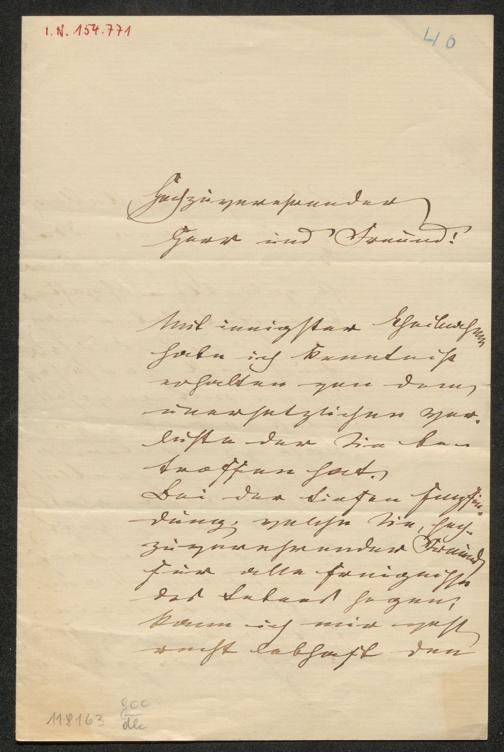 I. N. 154.771
40
Hochzuverehrender
Herr und Freund!
Mit innigster Theilnahme
habe ich Kenntniß
erhalten von dem
unersetzlichen Ver-
luste der Sie be-
troffen hat.
Bei der tiefen Empfin-
dung, welche Sie, hoch-
zuverehrender Freund
für alle Ereignisse
des Lebens hegen,
kann ich mir wohl
recht lebhaft den
118163